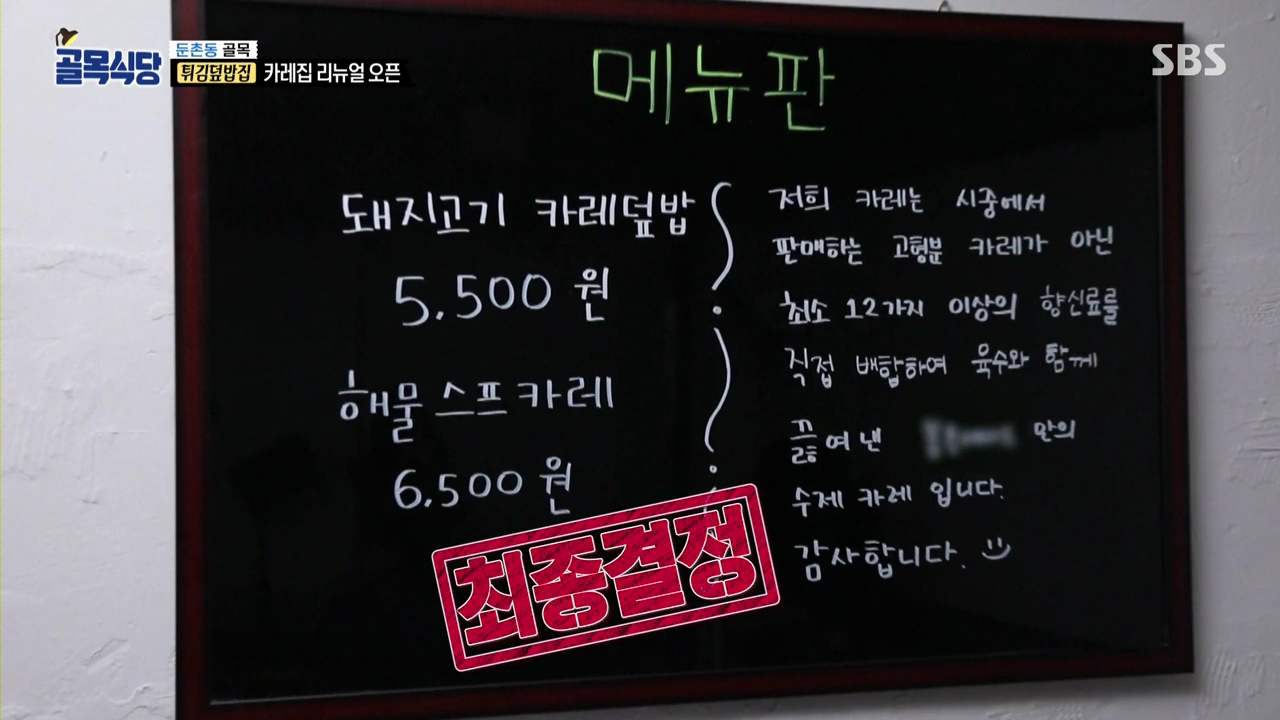 골목식당
둔촌동 골목
튀김덮밥집 카레집 리뉴얼 오픈
SBS
메뉴판
돼지고기 카레덮밥
5,500원
해물스프카레
6,500원
저희 카레는 시중에서
판매하는 고형분 카레가 아닌
최소 12가지 이상의 향신료를
직접 배합하여 육수와 함께
끓여낸 만의
수제 카레 입니다.
감사합니다.
최종결정